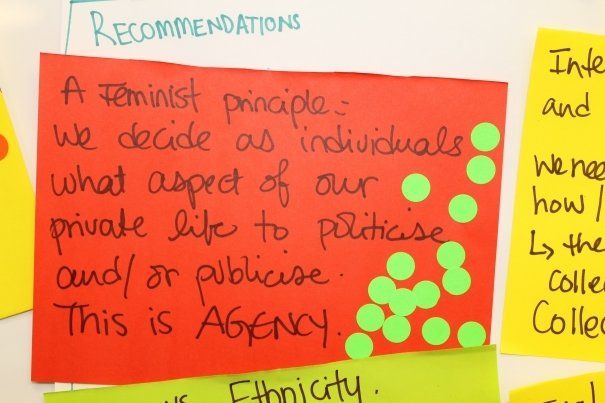 RECOMMENDATIONS
A Feminist principle:-
We decide as individuals
what aspect of our
private life to politicise
and/or publicise.
This is AGENCY.
Ethnicity.
Inte
and
We nee
how /
↳ the
Colle
Collec